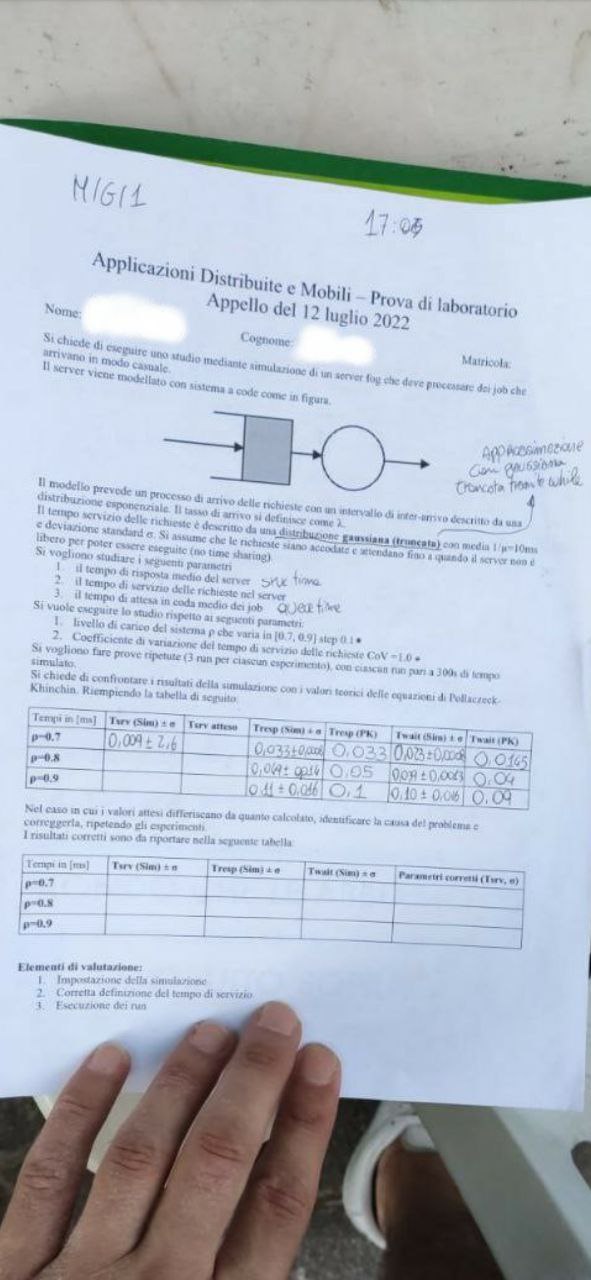 M/G/1
17:05
Applicazioni Distribuite e Mobili – Prova di laboratorio
Appello del 12 luglio 2022
Nome:
Cognome:
Matricola:
Si chiede di eseguire uno studio mediante simulazione di un server fog che deve processare dei job che
arrivano in modo casuale.
Il server viene modellato con sistema a code come in figura.
Approssimazione
con gaussiana
troncata tramite while
Il modello prevede un processo di arrivo delle richieste con un intervallo di inter-arrivo descritto da una
distribuzione esponenziale. Il tasso di arrivo si definisce come λ.
Il tempo servizio delle richieste è descritto da una distribuzione gaussiana (troncata) con media 1/μ=10ms
e deviazione standard σ. Si assume che le richieste siano accodate e attendano fino a quando il server non è
libero per poter essere eseguite (no time sharing).
Si vogliono studiare i seguenti parametri
1. il tempo di risposta medio del server
2. il tempo di servizio delle richieste nel server
3. il tempo di attesa in coda medio dei job
Si vuole eseguire lo studio rispetto ai seguenti parametri:
1. livello di carico del sistema ρ che varia in [0.7, 0.9] step 0.1
2. Coefficiente di variazione del tempo di servizio delle richieste CoV =1.0
Si vogliono fare prove ripetute (3 run per ciascun esperimento), con ciascun run pari a 300s di tempo
simulato.
Si chiede di confrontare i risultati della simulazione con i valori teorici delle equazioni di Pollaczek-
Khinchin. Riempiendo la tabella di seguito:
Tempi in [ms] Tsrv (Sim) ± σ Tsrv atteso Tresp (Sim) ± σ Tresp (PK) Twait (Sim) ± σ Twait (PK)
ρ=0.7 0,009 ± 2,6 0,033±0,0008 0,033 0,023±0,0008 0,0165
ρ=0.8 0,049± 0,05 0,04
ρ=0.9 0,11 ± 0,016 0,1 0,10 ± 0,016 0,09
Nel caso in cui i valori attesi differiscano da quanto calcolato, identificare la causa del problema e
correggerla, ripetendo gli esperimenti.
I risultati corretti sono da riportare nella seguente tabella:
Tempi in [ms] Tsrv (Sim) ± σ Tresp (Sim) ± σ Twait (Sim) ± σ Parametri corretti (Tsrv, σ)
ρ=0.7
ρ=0.8
ρ=0.9
Elementi di valutazione:
1. Impostazione della simulazione
2. Corretta definizione del tempo di servizio
3. Esecuzione dei run